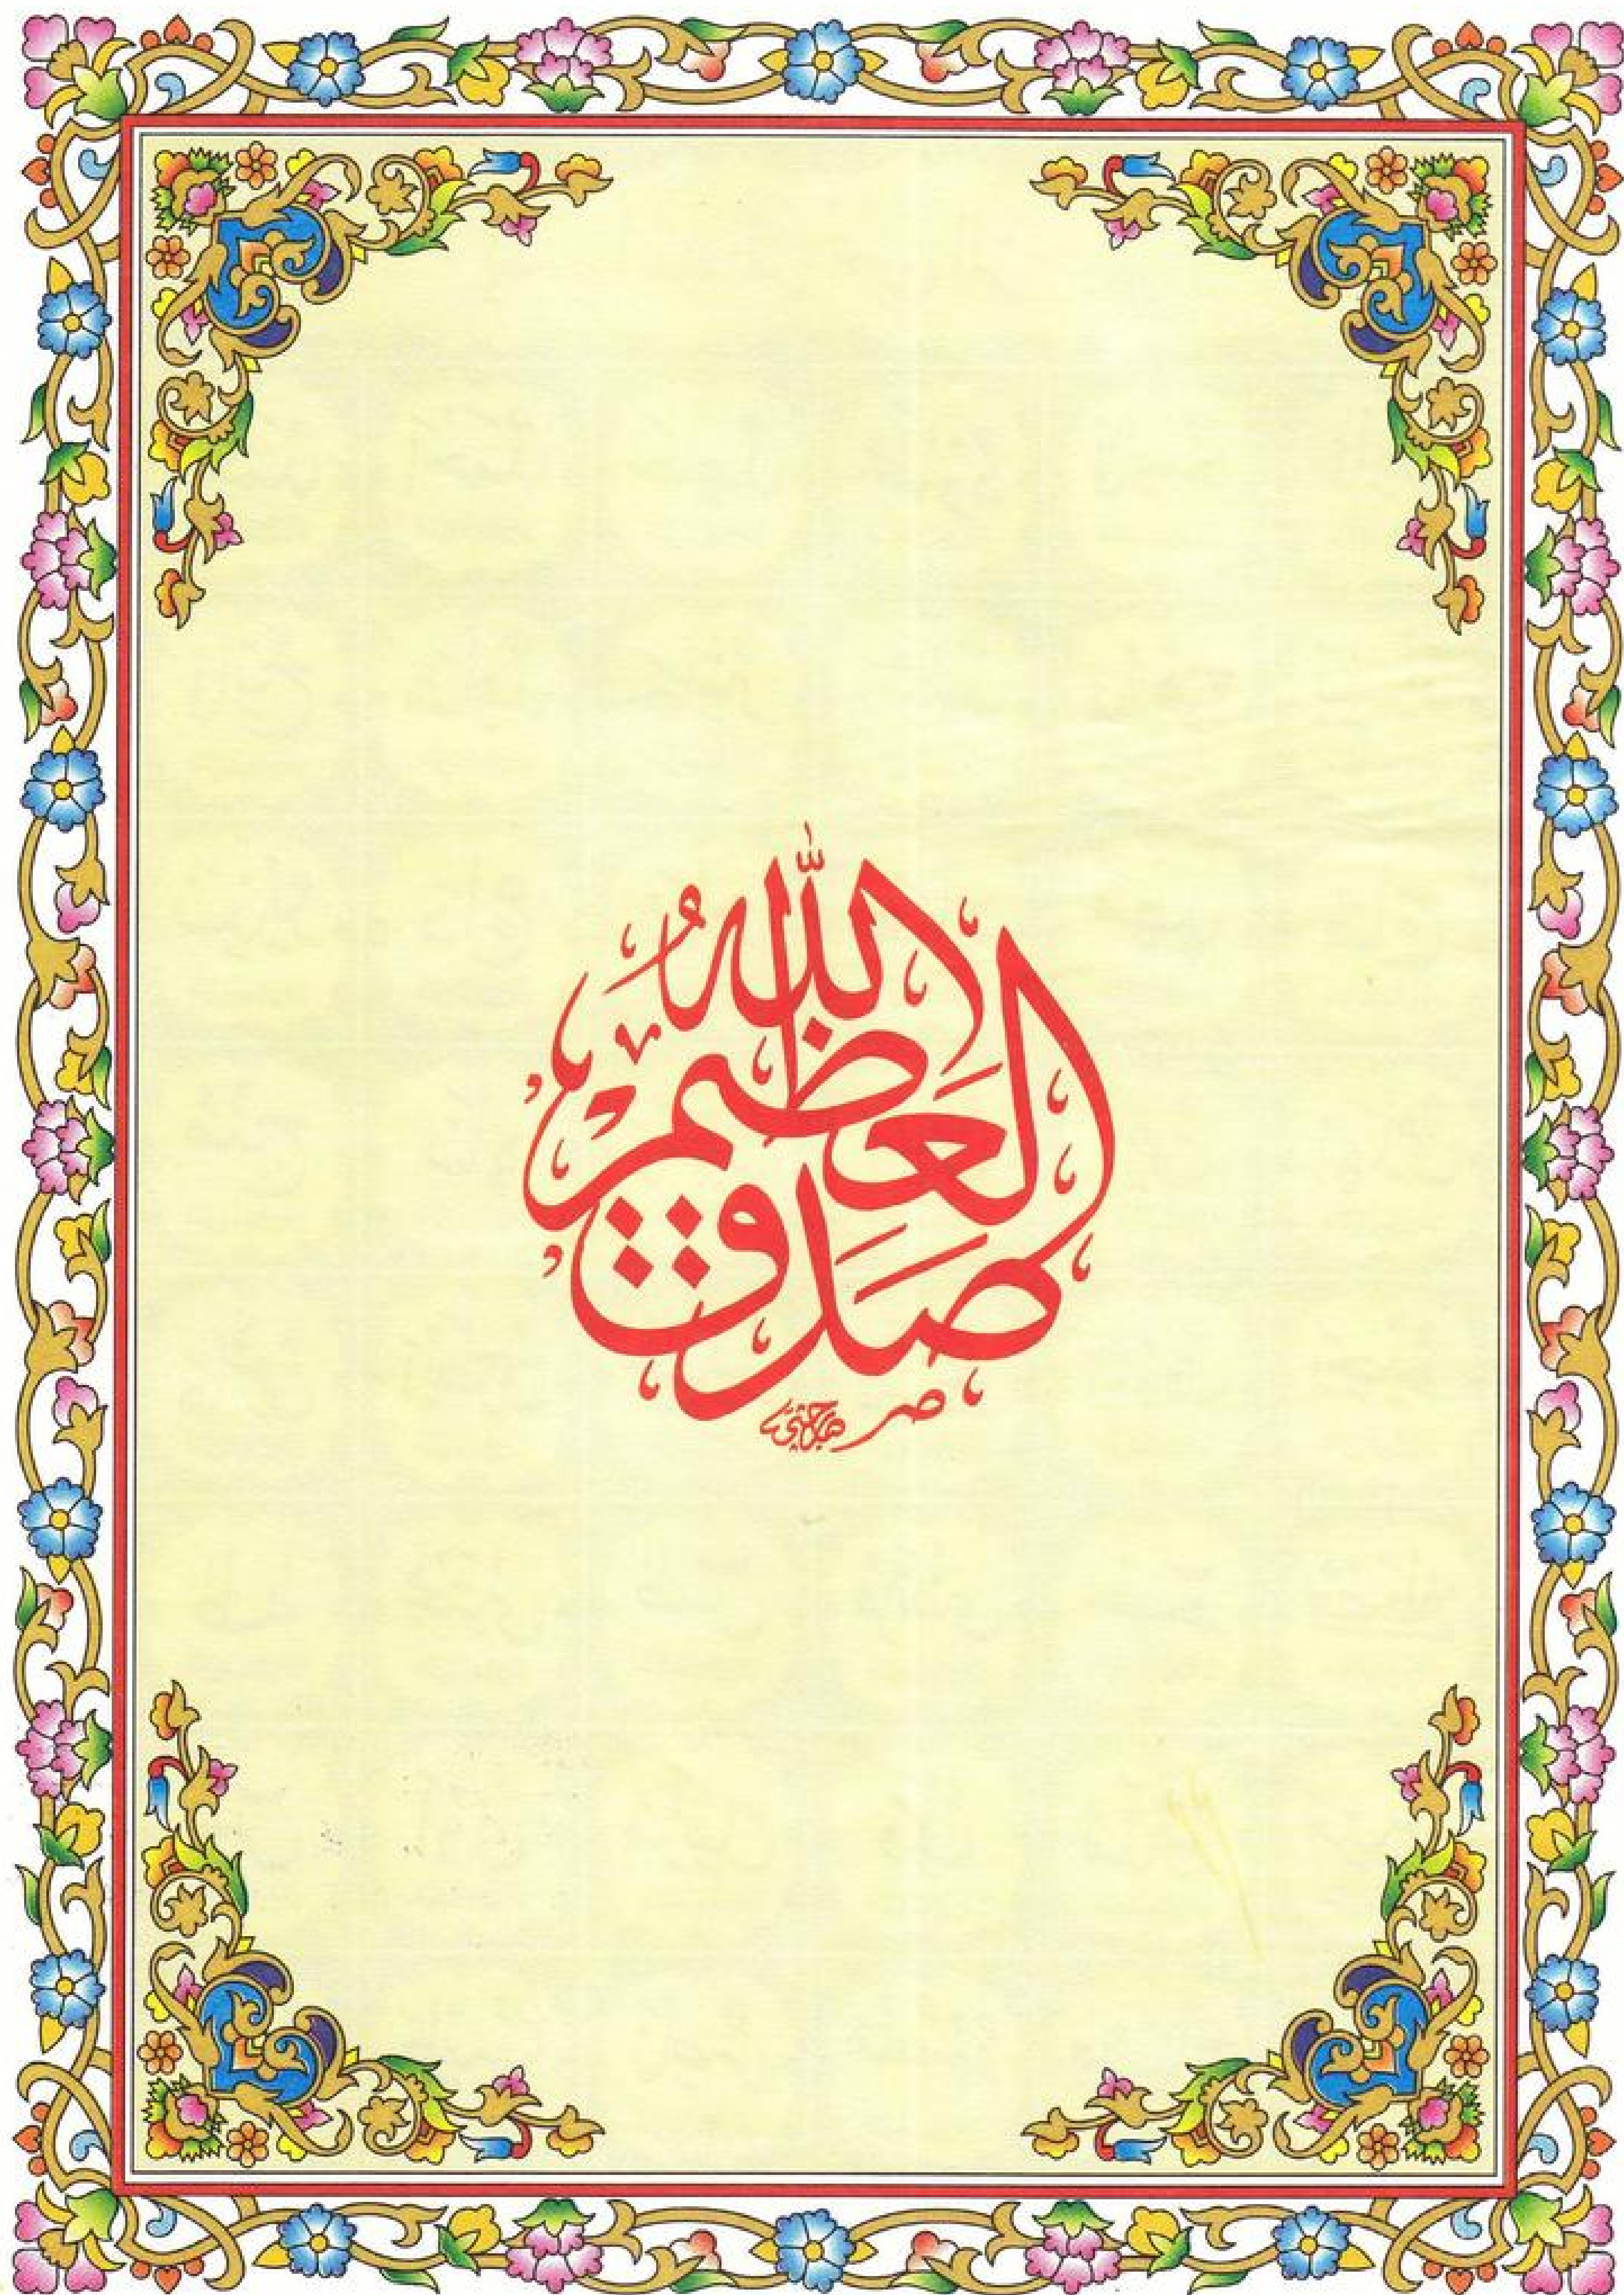 صَدَقَ اللّٰهُ العَظِيمُ